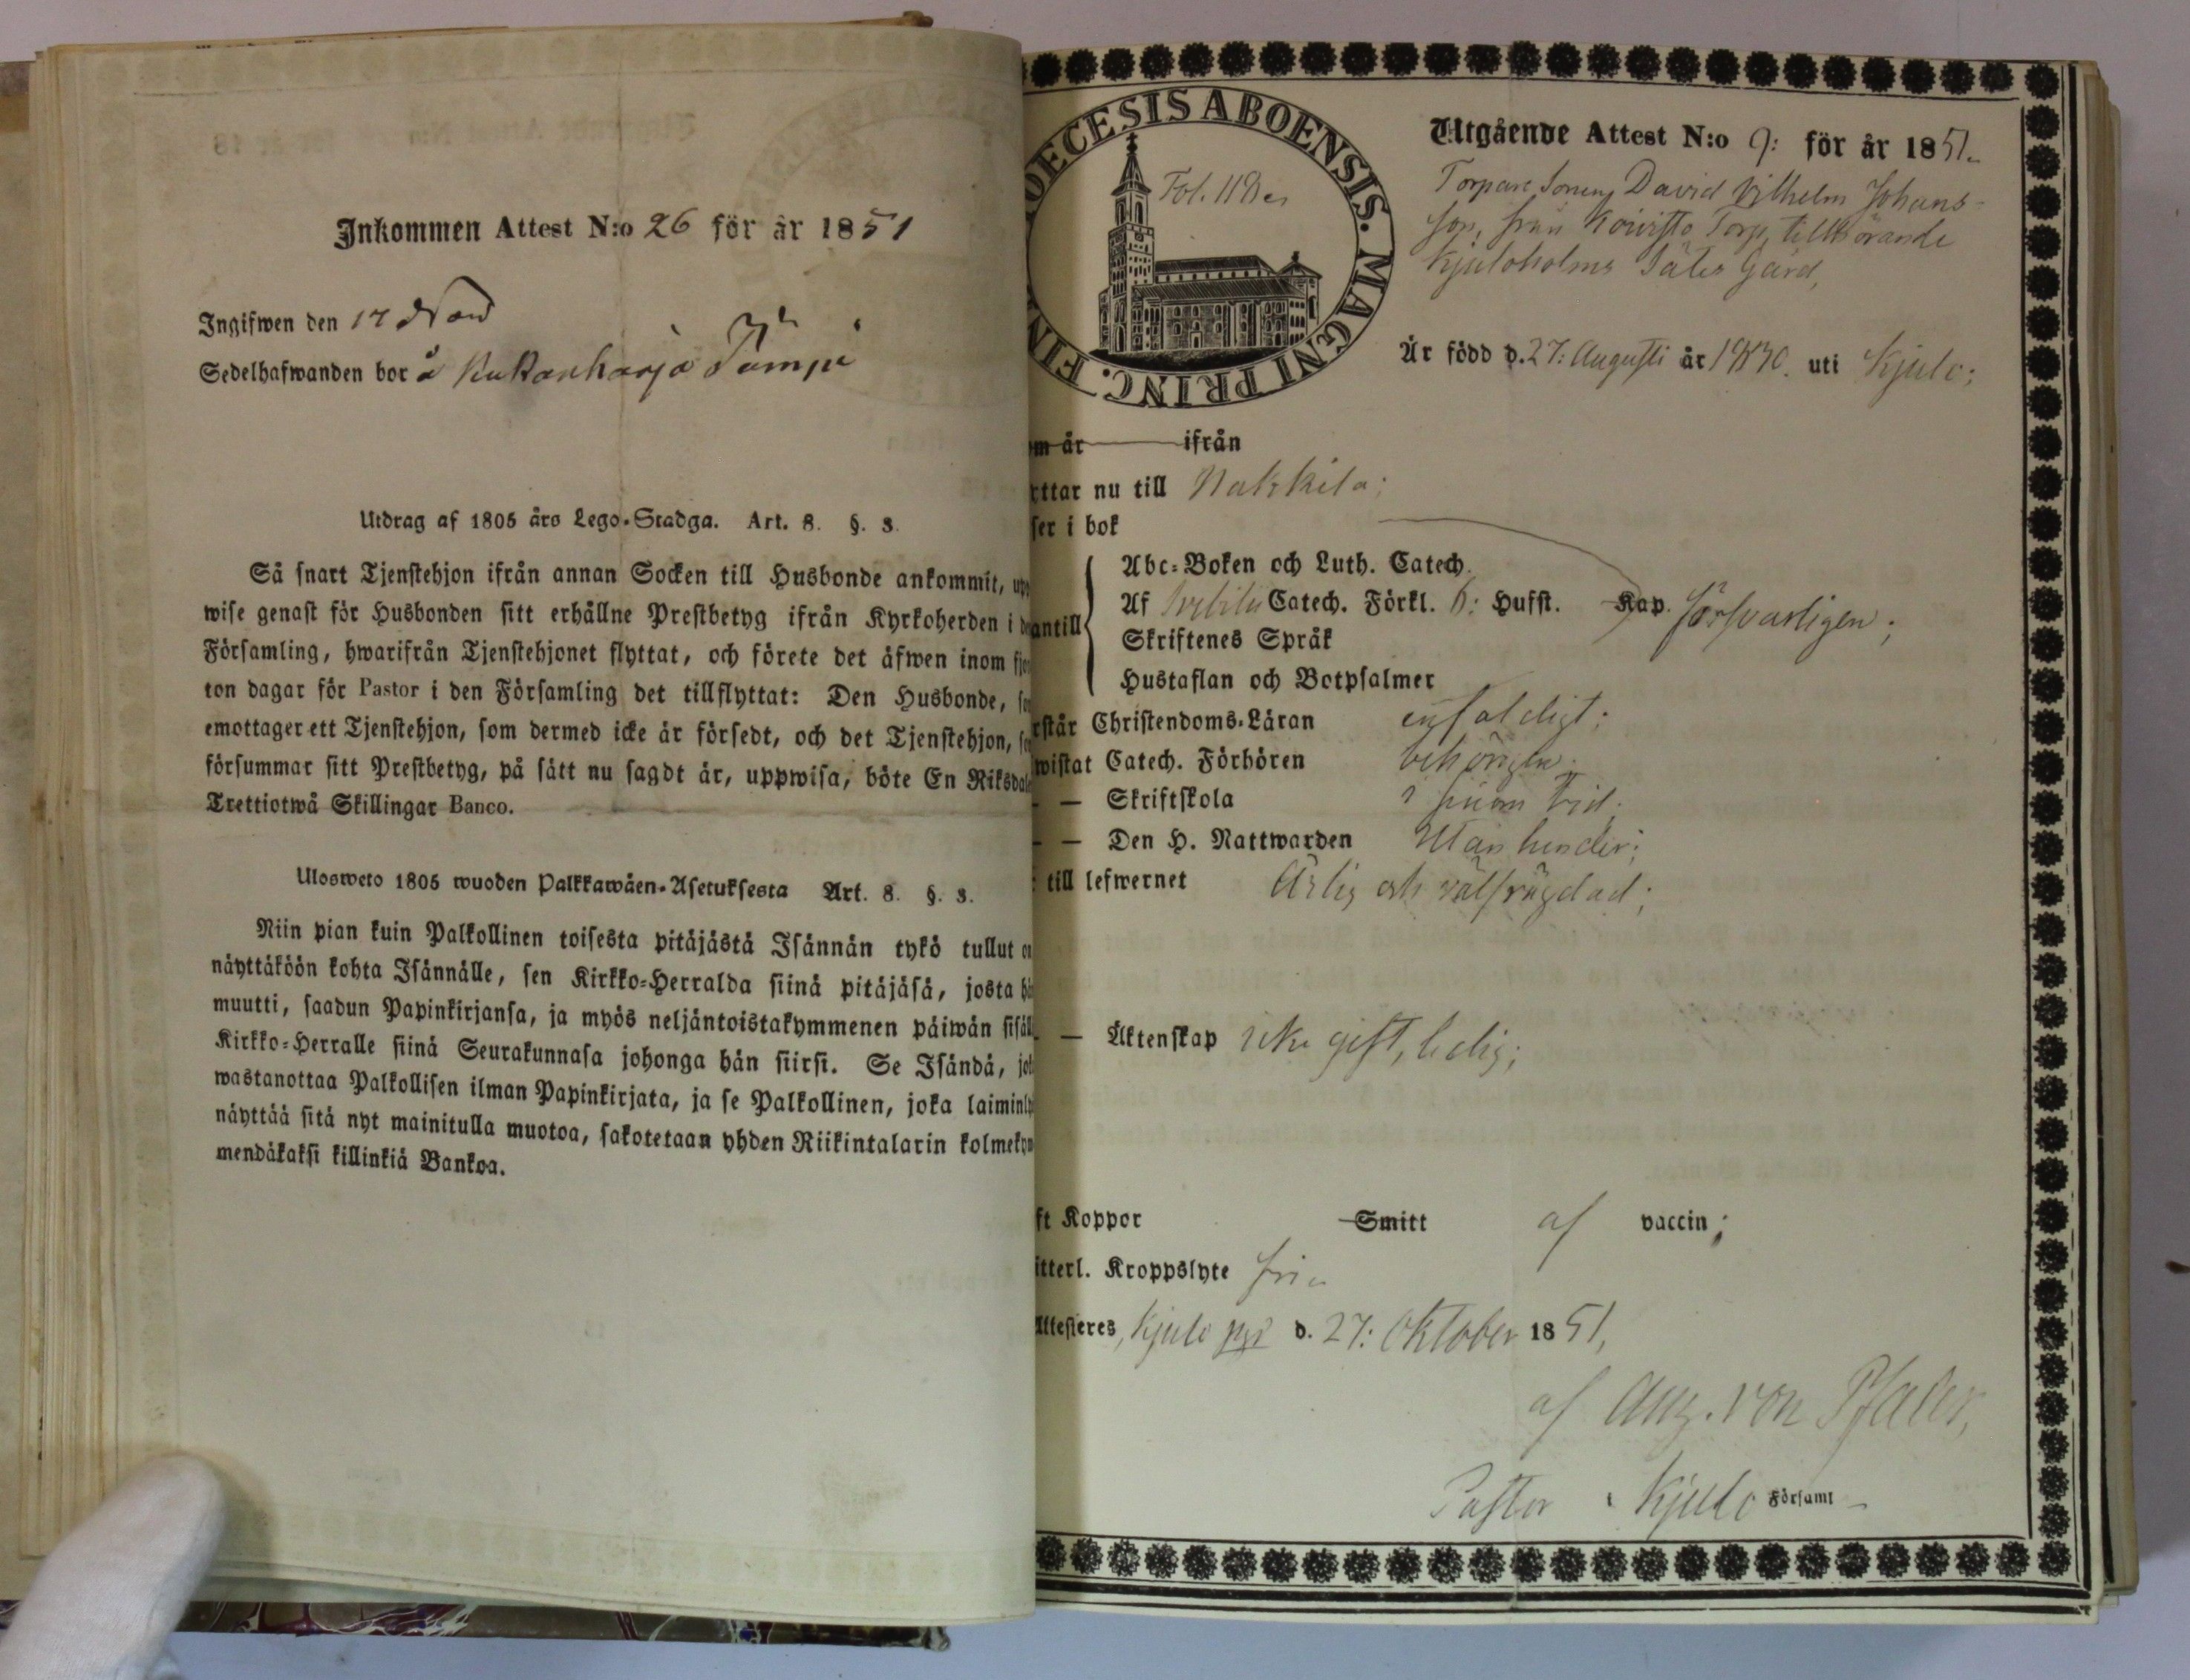 Inkommen Attest N:o 26 för år 1851
Ingifwen den 17 Nov
Sedelhafwanden bor å
Utdrag af 1805 års Lego-Stadga. Art. 8. §. 3.
Så snart Tjenstehjon ifrån annan Socken till Husbonde ankommit, upp
wise genast för Husbonden sitt erhållne Prestbetyg ifrån Kyrkoherden i de
Församling, hwarifrån Tjenstehjonet flyttat, och förete det äfwen inom fjor
ton dagar för Pastor i den Församling det tillflyttat: Den Husbonde, so
emottager ett Tjenstehjon, som dermed icke är försedt, och det Tjenstehjon, so
försummar sitt Prestbetyg, på sätt nu sagdt är, uppwisa, böte En Riksdale
Trettiotwå Skillingar Banco.
Ulosweto 1805 wuoden Palkkawäen-Asetuksesta Art. 8. §. 3.
Niin pian kuin Palkollinen toisesta pitäjästä Isännän tykö tullut on
näyttäköön kohta Isännälle, sen Kirkko-Herralda siinä pitäjäsä, josta hä
muutti, saadun Papinkirjansa, ja myös neljäntoistakymmenen päiwän sisäl
Kirkko-Herralle siinä Seurakunnasa johonga hän siirsi. Se Isändä, jok
wastanottaa Palkollisen ilman Papinkirjata, ja se Palkollinen, joka laiminly
näyttää sitä nyt mainitulla muotoa, sakotetaan yhden Riikintalarin kolmekym
mendäkaksi killinkiä Bankoa.
OECESIS ABOENSIS. MAGNI PRINC. FIN
Fol. 118
Utgående Attest N:o 9: för år 1851.
Torpare Sonen David Vilhelm Johans-
son, från Koivisto Torp, tillhörande
Kjuloholms Säteri Gård,
Är född d. 27: Augusti år 1830. uti Kjulo;
m år ifrån
ttar nu till Nakkila;
ser i bok
antill
Abc-Boken och Luth. Catech.
Af Svebilii Catech. Förkl. 6: Hufst. Kap. försvarligen;
Skriftenes Språk
Hustaflan och Botpsalmer
rstår Christendoms-Läran enfaldigt;
wistat Catech. Förhören behörigen;
— Skriftskola i sinom tid;
— Den H. Nattwarden utan hinder;
till lefwernet Ärlig och välfrägdad;
— Äktenskap icke gift, ledig;
ft Koppor Smitt af vaccin;
itterl. Kroppslyte fri
Attesteres, Kjulo d. 27: Oktober 1851,
af Aug. von Pfaler,
Pastor i Kjulo Församl